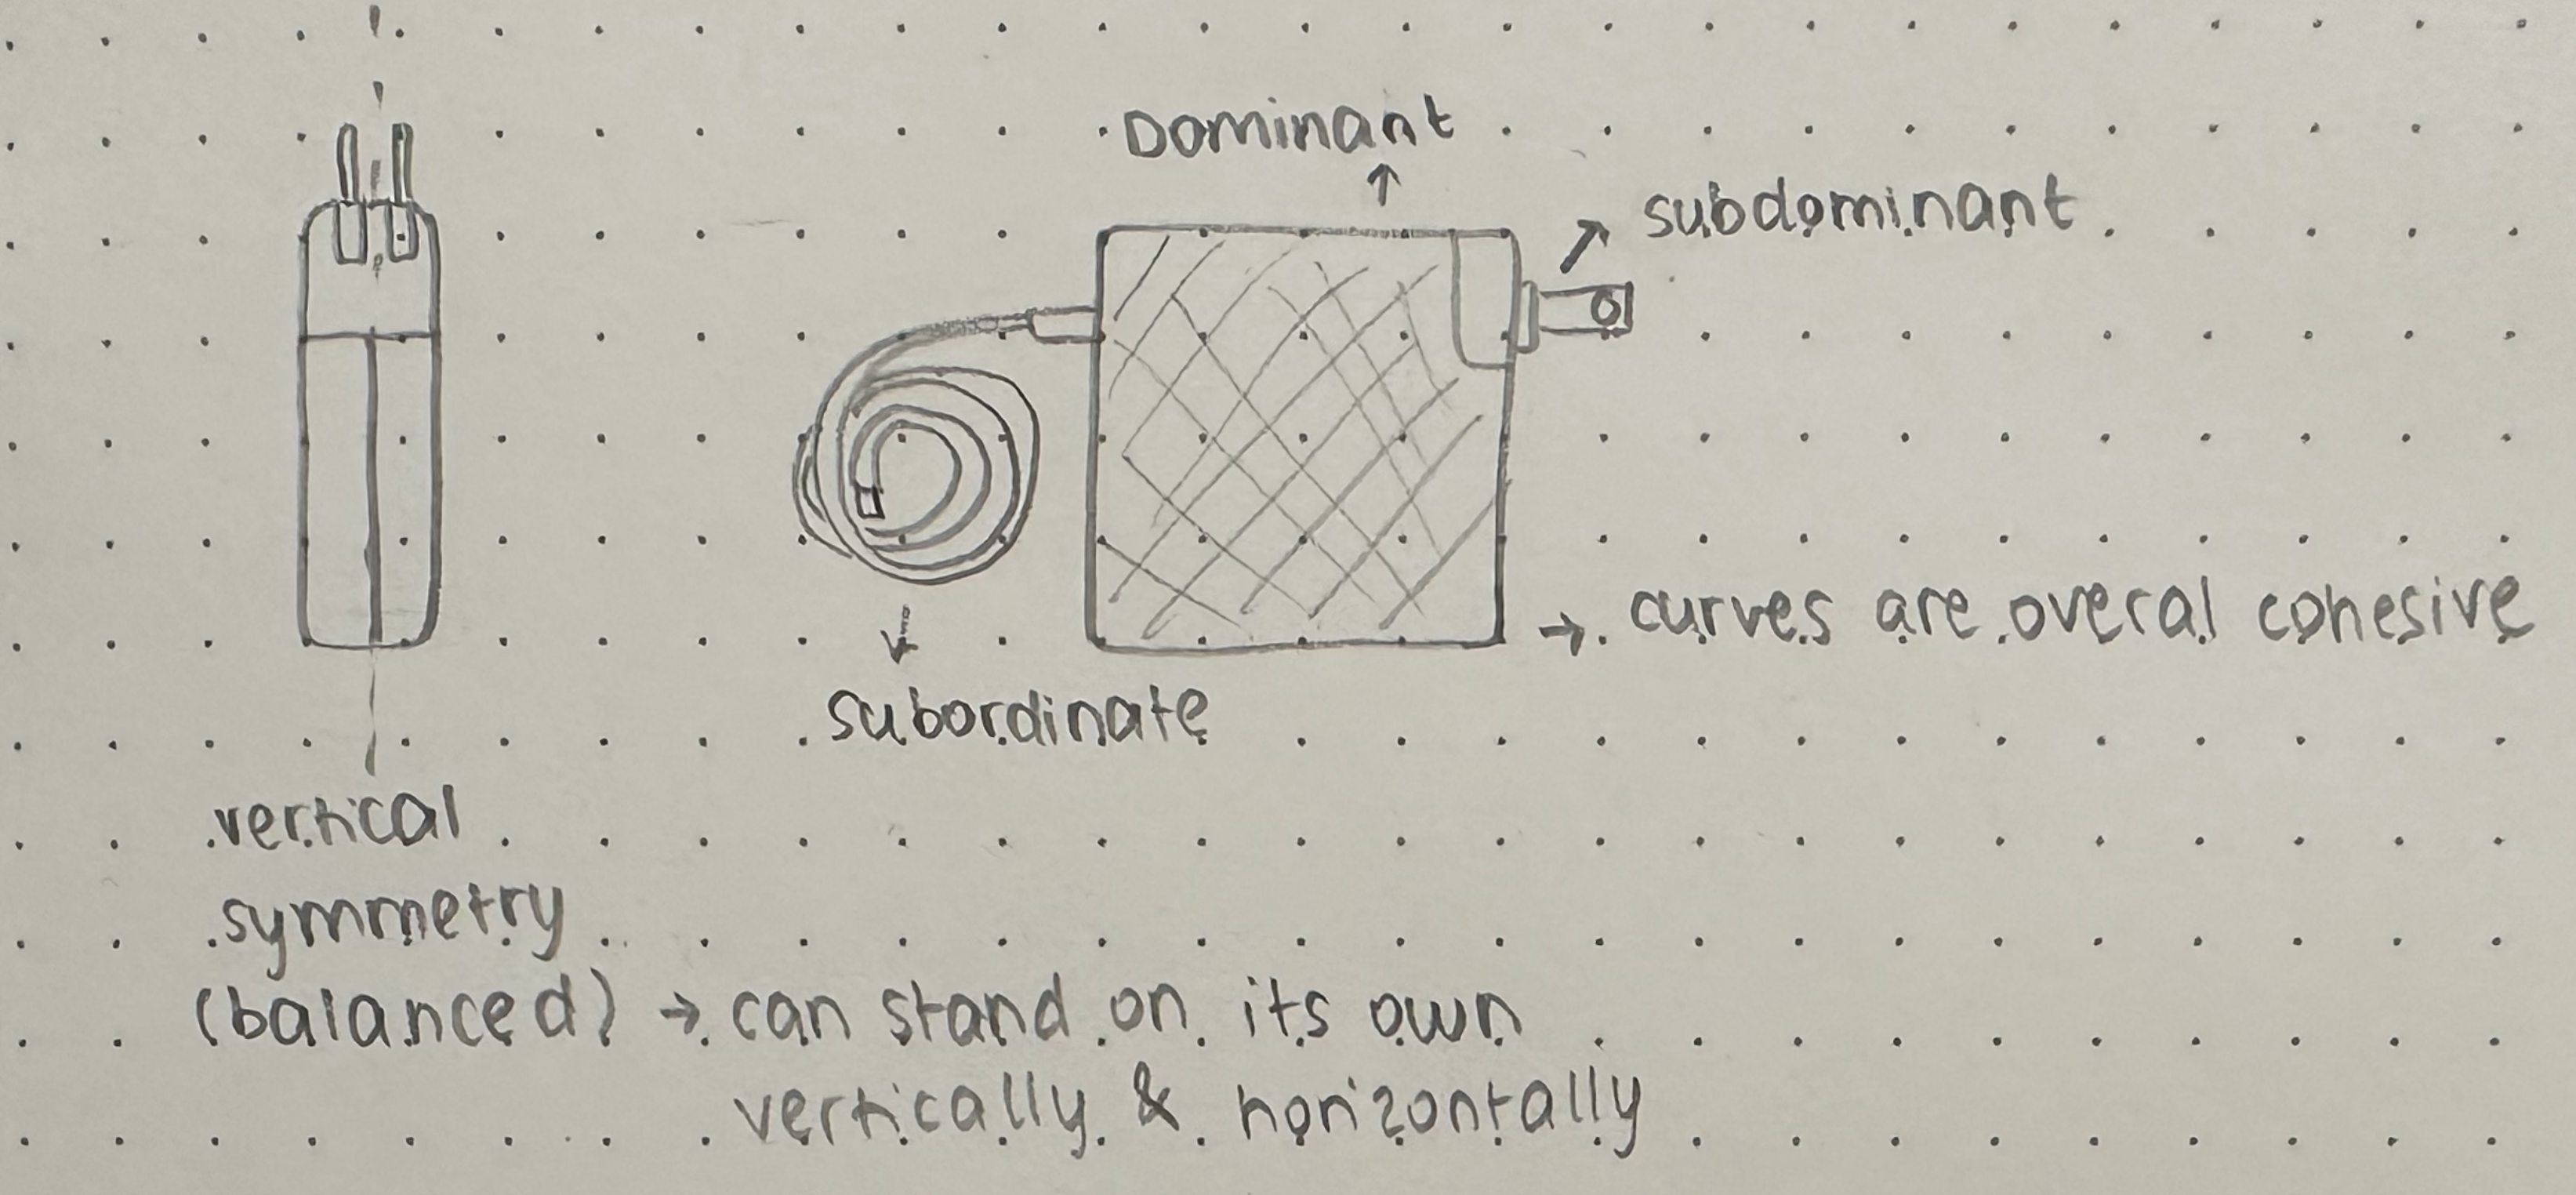 Dominant
subdominant
→ curves are overal cohesive
subordinate
vertical
symmetry
(balanced) → can stand on its own
vertically & horizontally